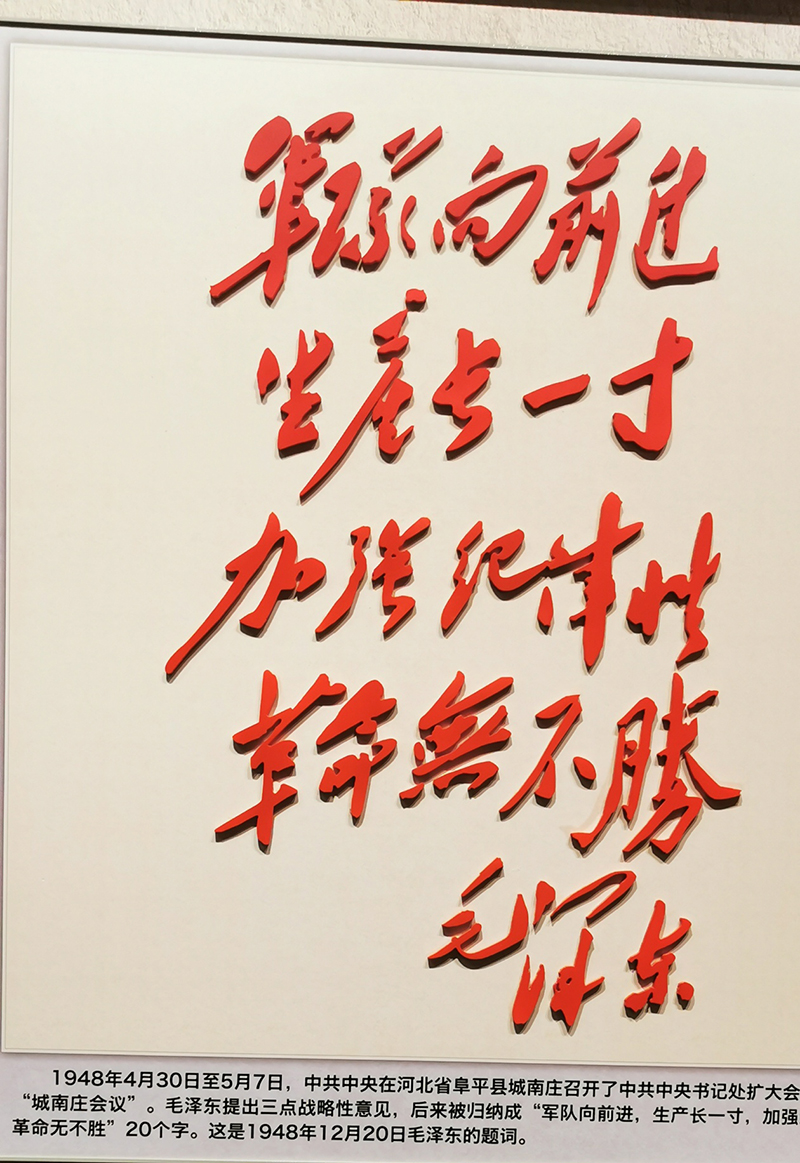 軍隊向前進
生產長一寸
加強紀律性
革命無不勝
毛泽东
1948年4月30日至5月7日，中共中央在河北省阜平县城南庄召开了中共中央书记处扩大会
“城南庄会议”。毛泽东提出三点战略性意见，后来被归纳成“军队向前进，生产长一寸，加强
革命无不胜”20个字。这是1948年12月20日毛泽东的题词。